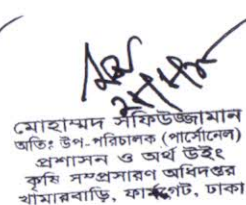 মোহাম্মদ সফিউজ্জামান
অতিঃ উপ-পরিচালক (পার্সোনেল)
প্রশাসন ও অর্থ উইং
কৃষি সম্প্রসারণ অধিদপ্তর
খামারবাড়ি, ফার্মগেট, ঢাকা